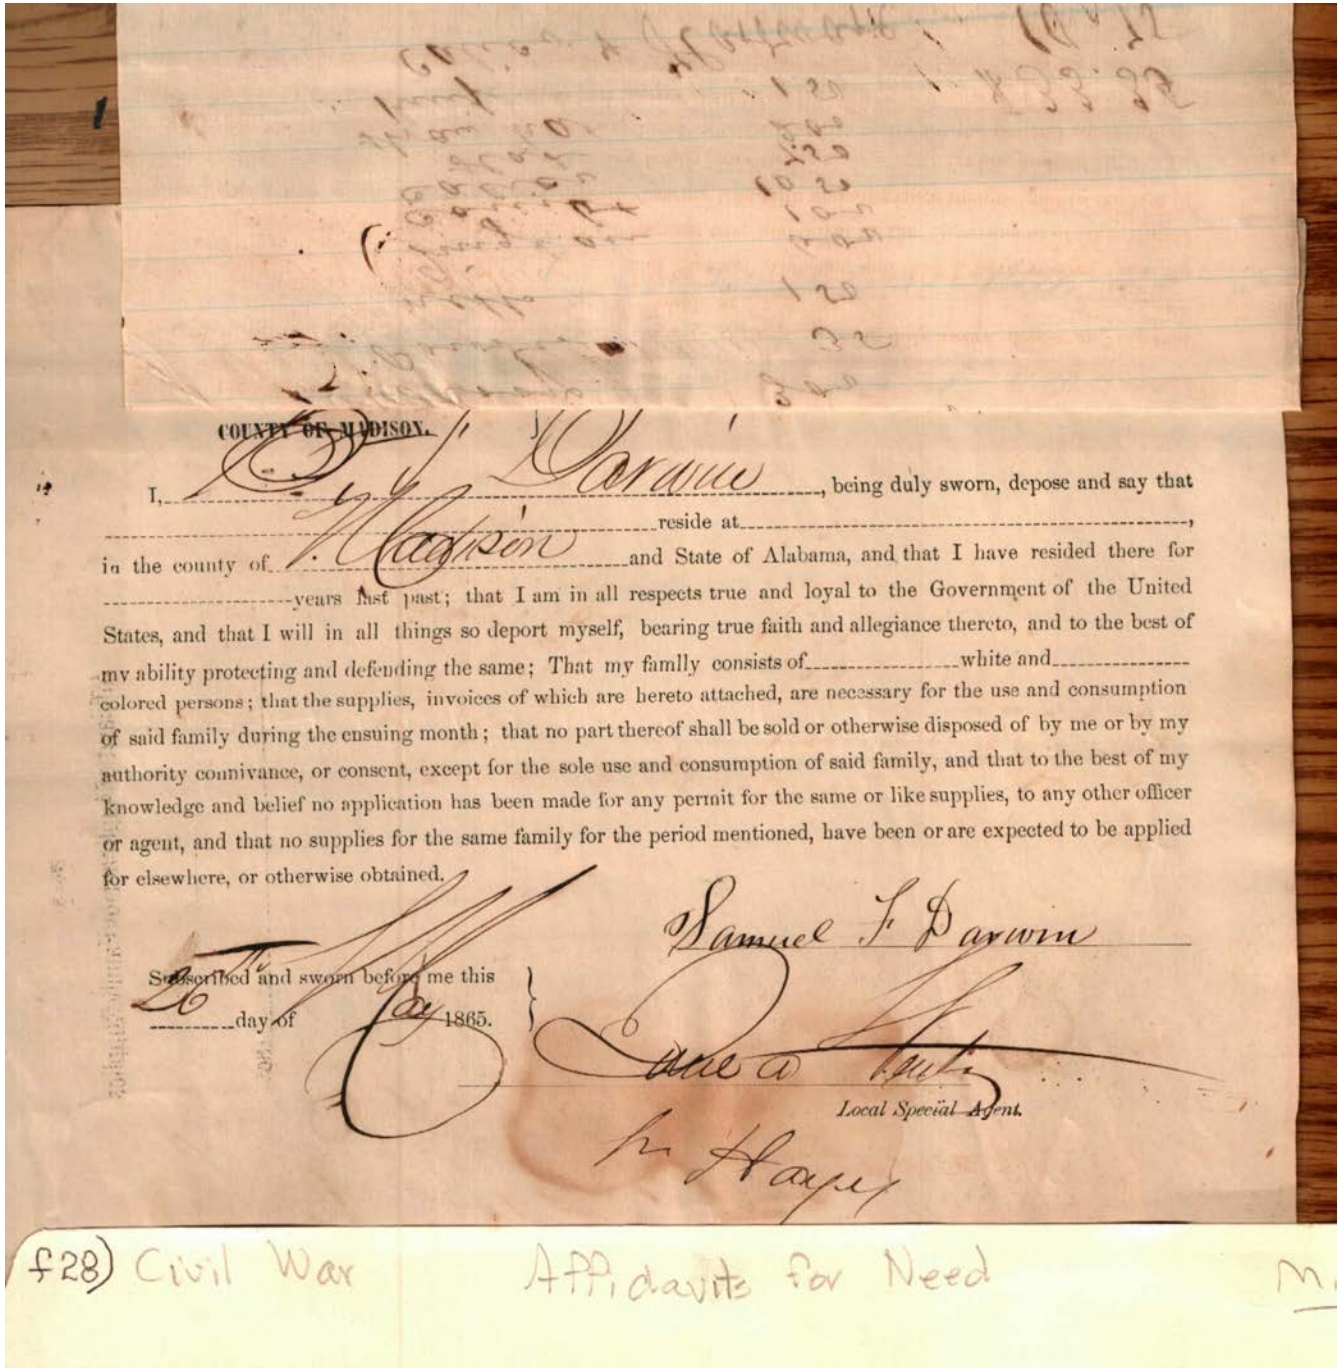 Calico & 10.75
1.50 $33.35
2.00
2.50
10.50
1.00
1.50
35
3.00
COUNTY OF MADISON. }
I, S. F. Darwin, being duly sworn, depose and say that
reside at,
in the county of Madison and State of Alabama, and that I have resided there for
years last past; that I am in all respects true and loyal to the Government of the United
States, and that I will in all things so deport myself, bearing true faith and allegiance thereto, and to the best of
my ability protecting and defending the same; That my famlly consists of white and
colored persons; that the supplies, invoices of which are hereto attached, are necessary for the use and consumption
of said family during the ensuing month; that no part thereof shall be sold or otherwise disposed of by me or by my
authority connivance, or consent, except for the sole use and consumption of said family, and that to the best of my
knowledge and belief no application has been made for any permit for the same or like supplies, to any other officer
or agent, and that no supplies for the same family for the period mentioned, have been or are expected to be applied
for elsewhere, or otherwise obtained.
Samuel F Darwin
Subscribed and sworn before me this
26th day of May 1865. }
Local Special Agent.
f28) Civil War Affidavits for Need M